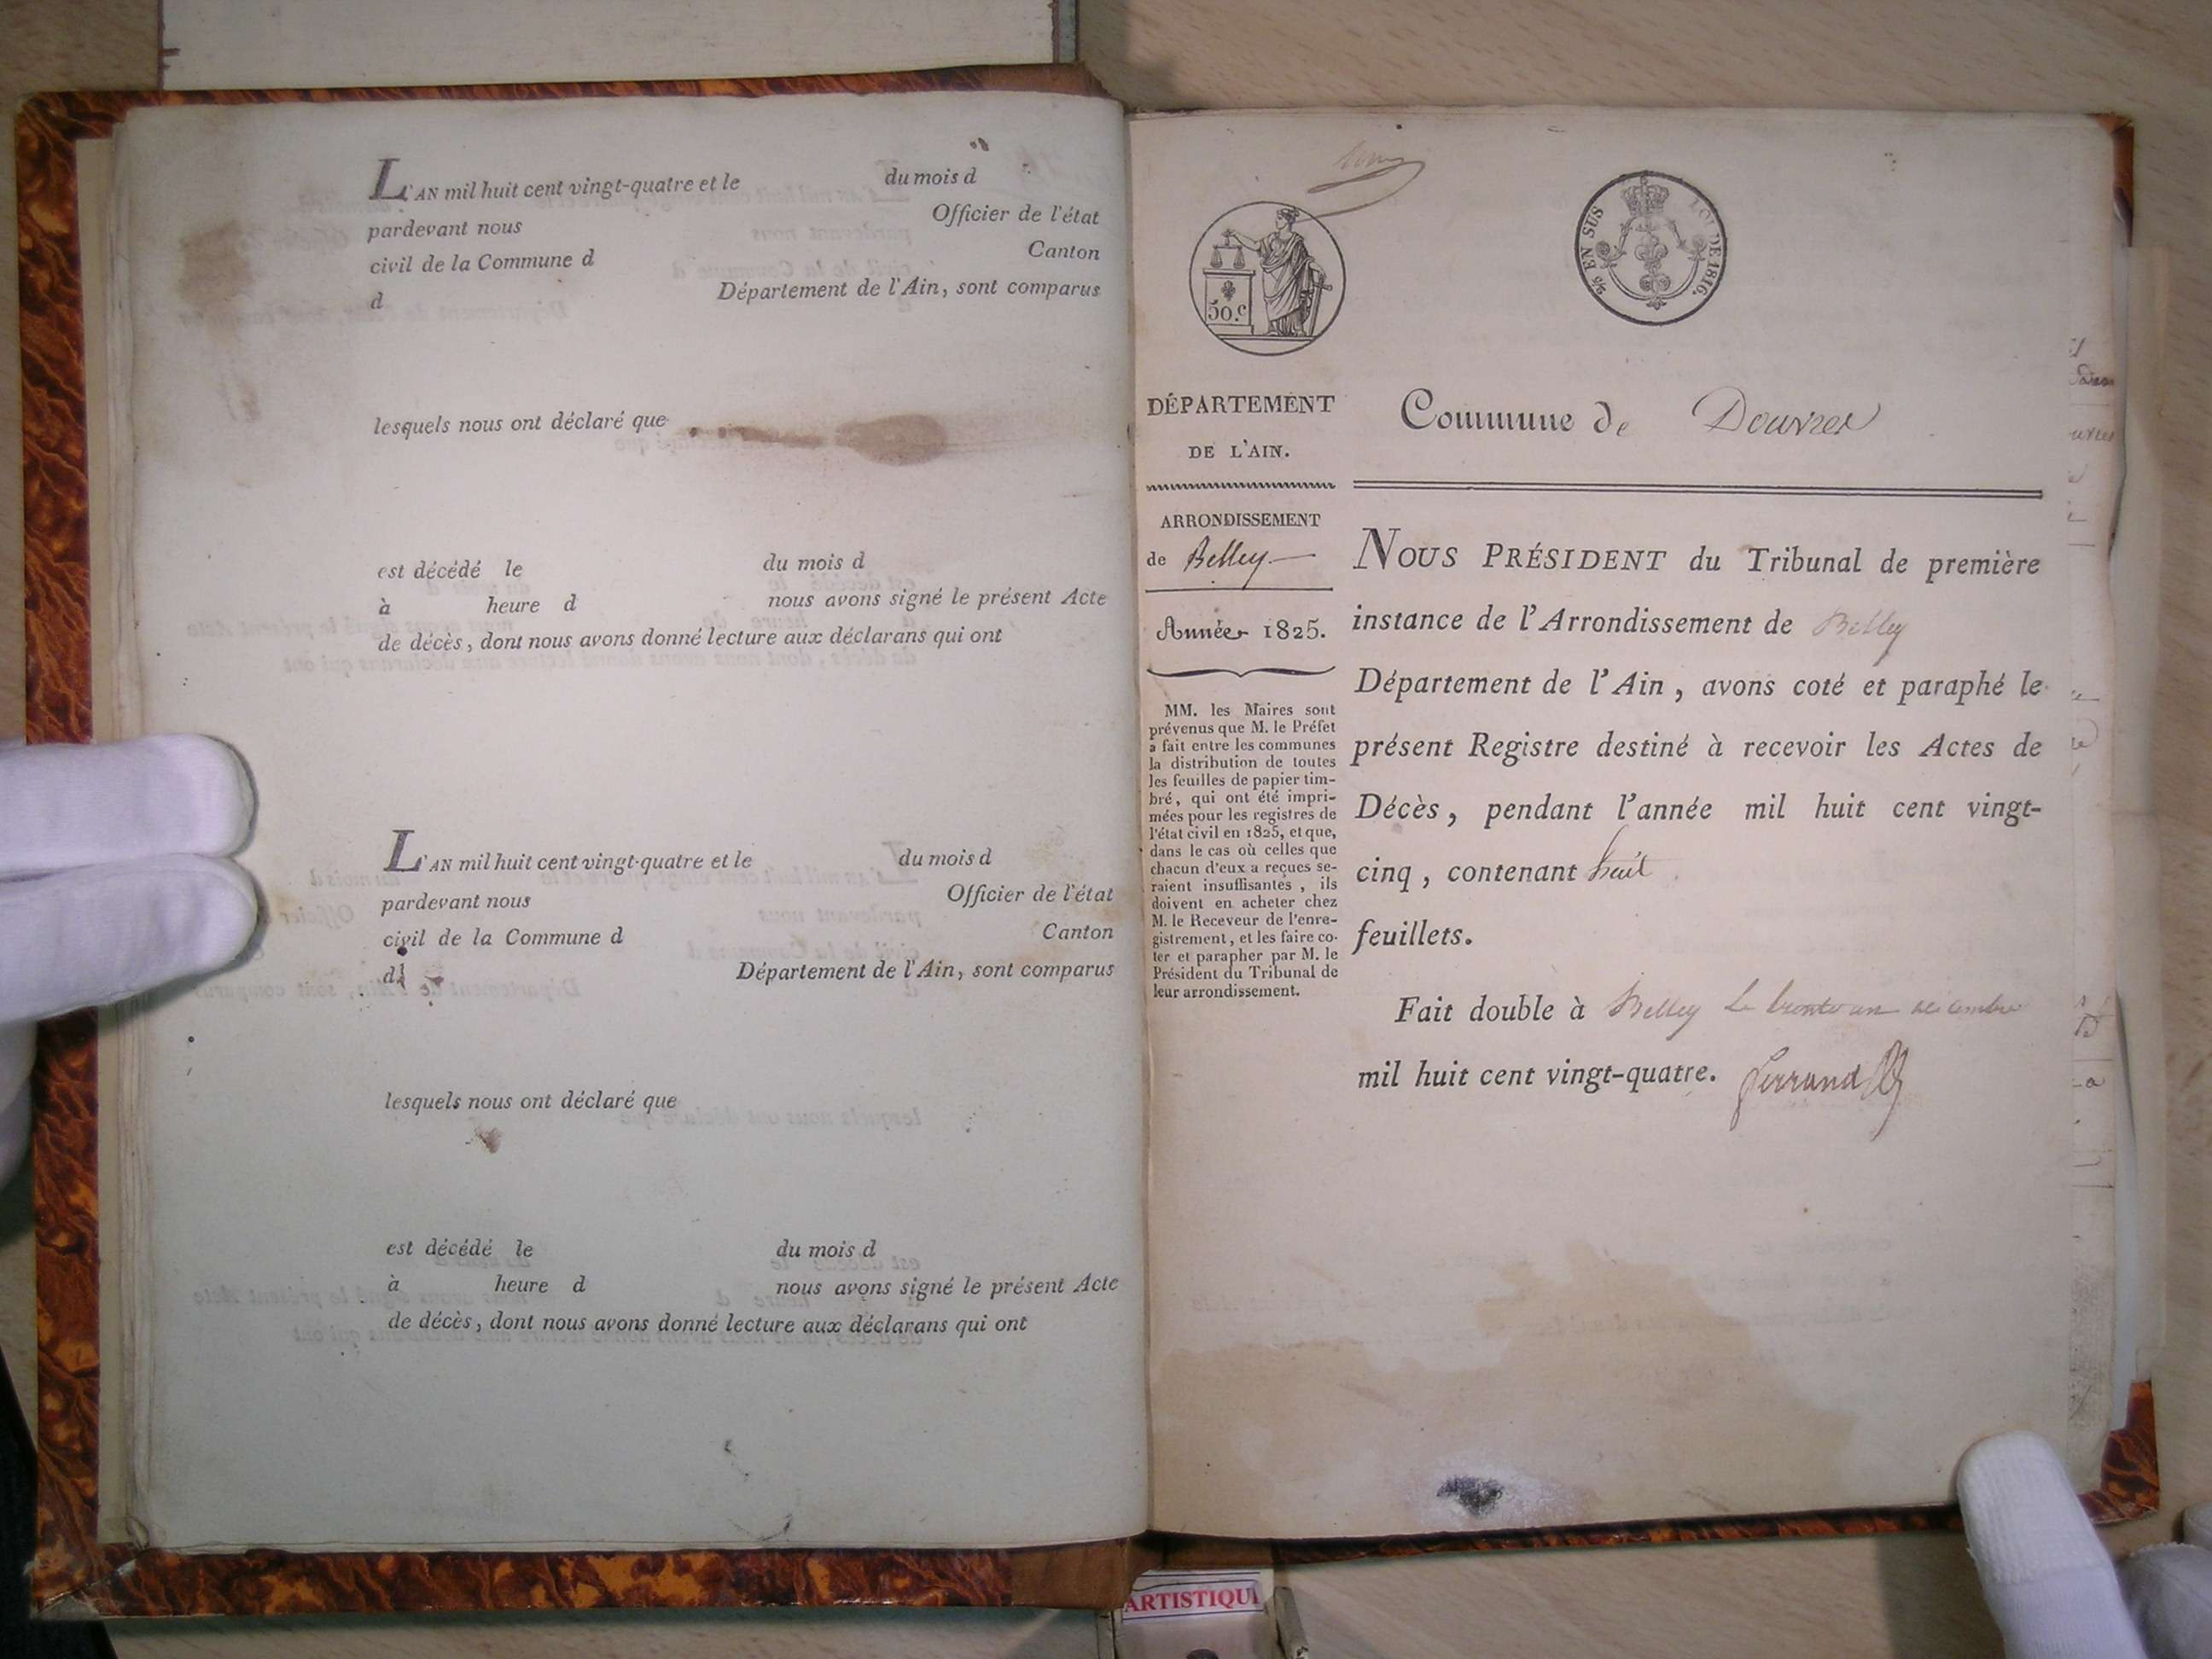 L'AN mil huit cent vingt-quatre et le du mois d
pardevant nous Officier de l'état
civil de la Commune d Canton
d Département de l'Ain, sont comparus
lesquels nous ont déclaré que
est décédé le du mois d
à heure d nous avons signé le présent Acte
de décès, dont nous avons donné lecture aux déclarans qui ont
L'AN mil huit cent vingt-quatre et le du mois d
pardevant nous Officier de l'état
civil de la Commune d Canton
d Département de l'Ain, sont comparus
lesquels nous ont déclaré que
est décédé le du mois d
à heure d nous avons signé le présent Acte
de décès, dont nous avons donné lecture aux déclarans qui ont
50.c
EN SUS LOI DE 1816.
DÉPARTEMENT
DE L'AIN.
ARRONDISSEMENT
de Belley
Année 1825.
MM. les Maires sont
prévenus que M. le Préfet
a fait entre les communes
la distribution de toutes
les feuilles de papier tim-
bré, qui ont été impri-
mées pour les registres de
l'état civil en 1825, et que,
dans le cas où celles que
chacun d'eux a reçues se-
raient insuffisantes, ils
doivent en acheter chez
M. le Receveur de l'enre-
gistrement, et les faire co-
ter et parapher par M. le
Président du Tribunal de
leur arrondissement.
Commune de Douvres
NOUS PRÉSIDENT du Tribunal de première
instance de l'Arrondissement de Belley
Département de l'Ain, avons coté et paraphé le
présent Registre destiné à recevoir les Actes de
Décès, pendant l'année mil huit cent vingt-
cinq, contenant huit
feuillets.
Fait double à Belley le trente un decembre
mil huit cent vingt-quatre. Ferrand
ARTISTIQU